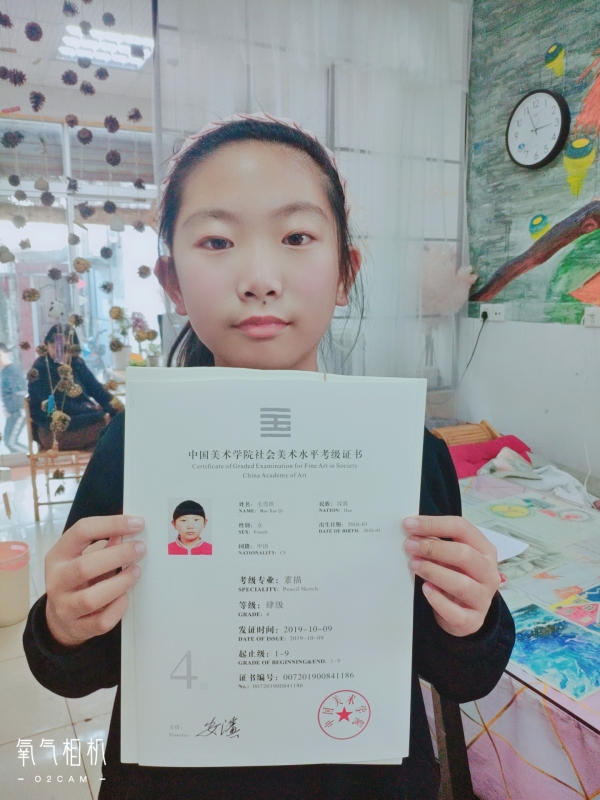 中国美术学院社会美术水平考级证书
Certificate of Graded Examination for Fine Art in Society
China Academy of Art
姓名:
NAME:
民族: 汉族
NATION: Han
性别: 女
SEX: Female
出生日期:
DATE OF BIRTH:
国籍: 中国
NATIONALITY: CN
考级专业: 素描
SPECIALITY: Pencil Sketch
等级: 肆级
GRADE: 4
发证时间: 2019-10-09
DATE OF ISSUE: 2019-10-09
起止级: 1-9
GRADE OF BEGINNING&END: 1-9
证书编号: 007201900841186
No.: 007201900841186
4级
中国美术学院
氧气相机
O2CAM